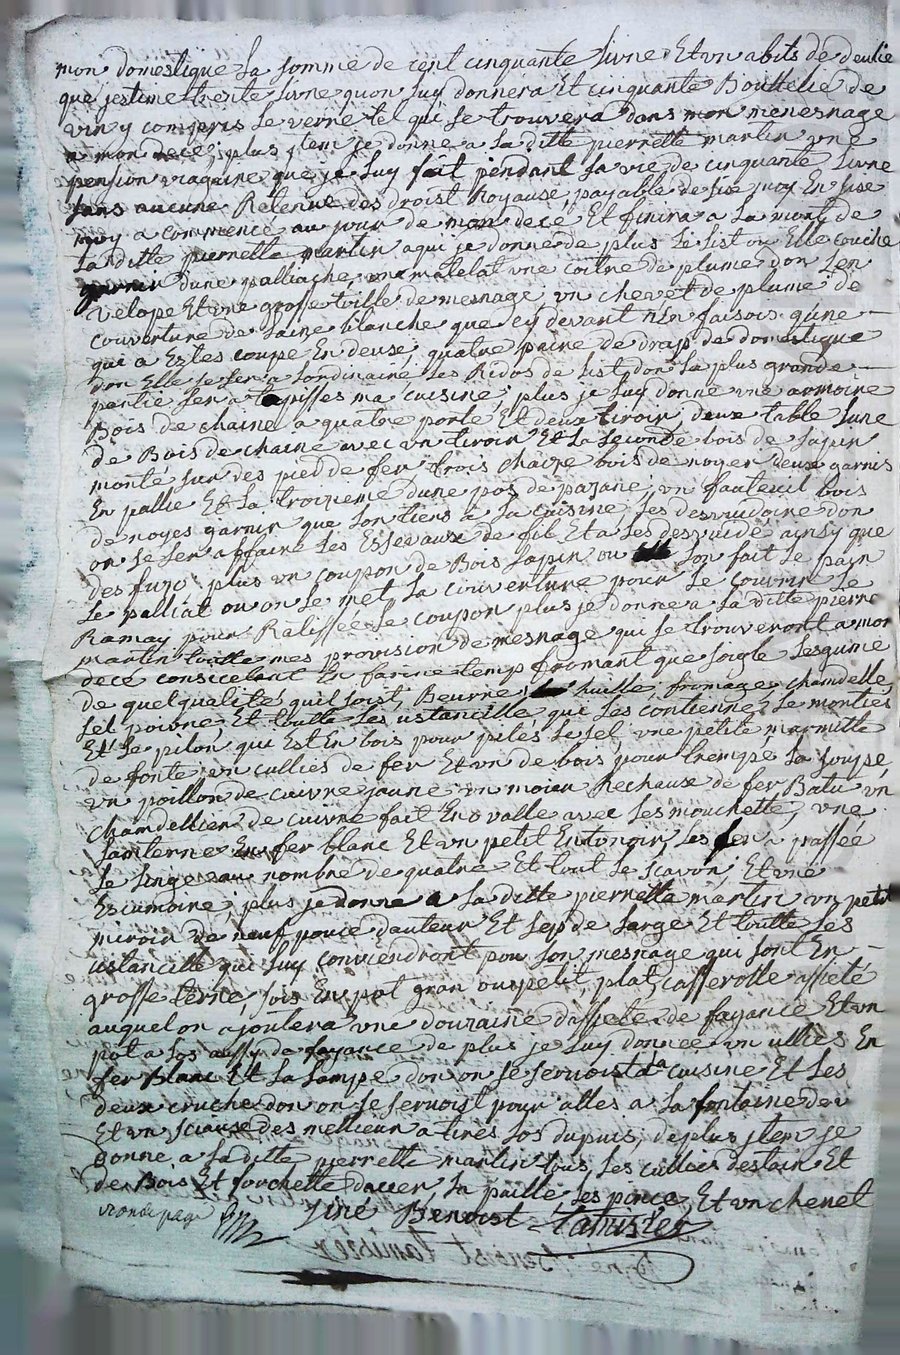 mon domestique La somme de cent cinquante Livre Et un abits de deulie
que jestime trente Livre quon Luy donnera Et cinquante Bouttelie de
vin y compris Le verre tel qui se trouvera dans mon menesnage
a mon decé; plus jtem je donne a La ditte pierrette martin une
pension viagaire que je Luy fait pendant sa vie de cinquante Livre
sans aucune Retenue des droist Royause, payable de sise moy En sise
moy a commencé au jour de mon decé Et finira a La mort de
La ditte pierrette martin a qui je donne de plus Le List ou Elle couche
garnir dune palliache, une matelat une coitre de plume don Len
velope Et une grosse toille de mesnage un chevet de plume de
couverture de Laine blanche que cy devant nen faisois qúne
qui a Estes coupe En deuse; quatre paire de drap de domestique
don Elle se sera Lordinaire Les Ridos de List, don La plus grande
partie sera tapisses ma cuisine; plus je Luy donne une armoire
Bois de chaine a quatre porte Et deux tiroir, deux table Lune
de Bois de chaine avec un tiroir Et La seconde bois de sapin
monté sur des pied de fer trois chaize bois de noyer deux garnis
En pallie Et La troizieme dune pos de pazane; un fauteuil bois
de noyes garnir que Lon tiens a La cuisine Les desvuidoire don
on se sen affaire Les Essevause de fil Et a Les desvuidé ainsy que
des fuzo plus un coupon de Bois sapin ou Lon fait Le pain
Le palliat ou on Le met La couverture pour Le couvrir Le
Ramay pour Ralissee Le coupon plus je donne a La ditte pierre
martin toutte mes provision de mesnage qui se trouveront a mon
decé consistant En farine temp fromant que soigle Lesgume
de quelqualité quil soist, Beurre, huille, fromage, chamdelle,
sel poivre, Et toutte Les ustancille qui Les contienne, Le mortiés
Et Le pilon qui Est En bois pour piles Le sel, une petite marmitte
de fonte, un cullies de fer Et un de bois pour trempé La soupe
un poillon de cuivre jaune un moien Rechause de fer Batu un
chamdellier de cuivre fait En o valle avec Les mouchette, une
Lanterne En fer blanc Et un petit Entonoir, Les fer a passée
Le Linge au nombre de quatre Et tout Le scavon; Et une
Escumoire, plus je donne a La ditte pierrette martin un petit
miroir de neuf pouce dauteur Et sept de Large Et toutte Les
ustancille qui Luy conviendront pour son mesnage qui sont En
grosse terre, sois En pot gran ou petit, plat, casserolle assieté
auquel on ajoutera une douzaine dassiete de fayance Et un
pot a Los aussy de fayance de plus je Luy donnée un ullies En
fer Blanc Et La Lampe don on se servoist a La cuisine Et Les
deux cruche don on se servoist pour alles a La fontaine dou
Et un sciause des mellieur a tires Los du puis, de plus jtem je
Donne a La ditte pierrette martin tous Les cullies destain Et
de Bois Et fourchette dacier, La paille, Les pance, Et un chenet
page Sine Benoist Tamisier